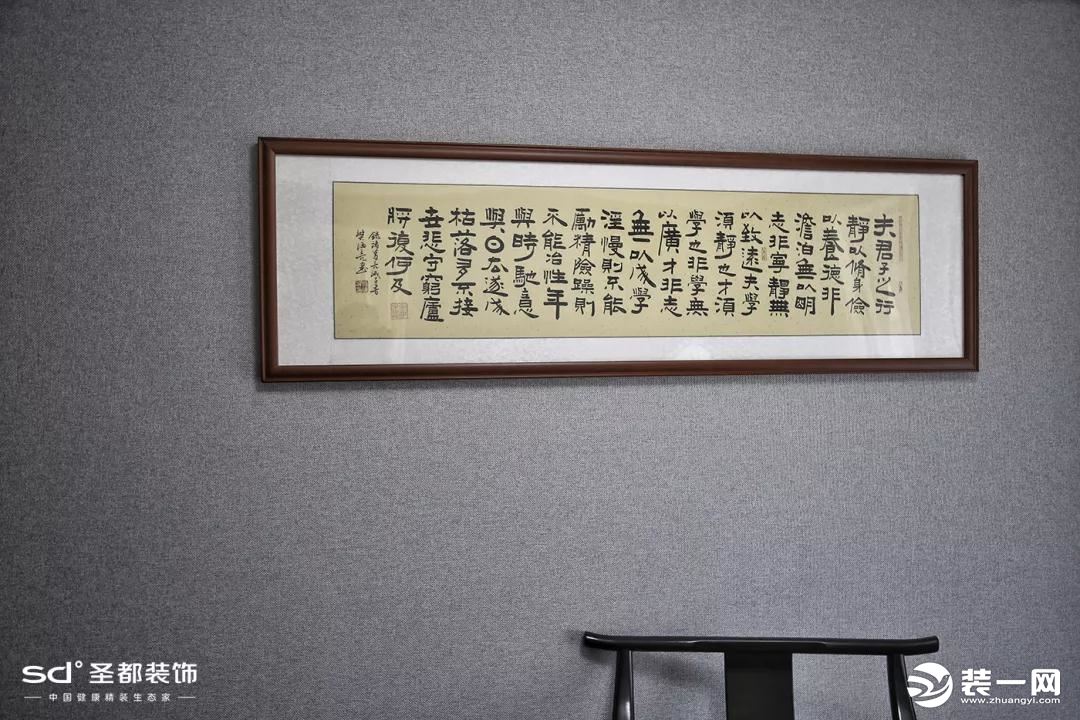 夫君子之行
靜以脩身儉
以養德非
澹泊無以明
志非寧靜無
以致遠夫學
須靜也才須
學也非學無
以廣才非志
無以成學
淫慢則不能
勵精險躁則
不能治性年
與時馳意
與日去遂成
枯落多不接
世悲守窮廬
將復何及
sd°圣都装饰
中国健康精装生态家
装一网
www.zhuangyi.com